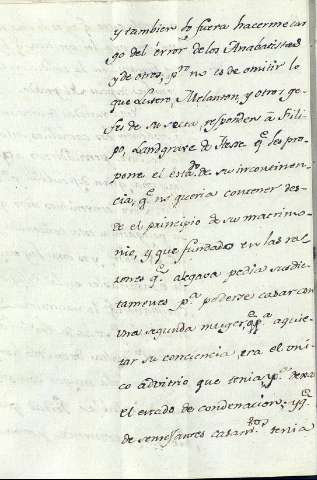 y tambien lo fuera hacerme car
go del error de los Anabatistas
y de otros, pº no es de omitir lo
que Lutero, Melanton, y otros ge
fes de su secta, responden a Fili
po, Landgrave de Hese qº les pro
pone el estdo de su incontinen
cia, qº no queria contener des
de el principio de su matrimo
nio, y que fundado en las ra
zones qº alegava pedia sus dic
tamenes pª poderse casar con
una segunda muger, qº pª aquie
tar su conciencia era el uni
co advitrio que tenia, pª dexar
el estado de condenacion; y qº
de semejantes casamtos tenia